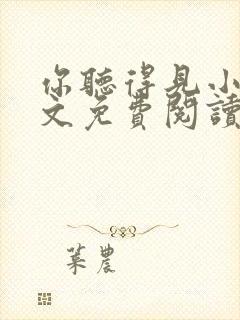 你聽得見小
文免費閱讀
葉農